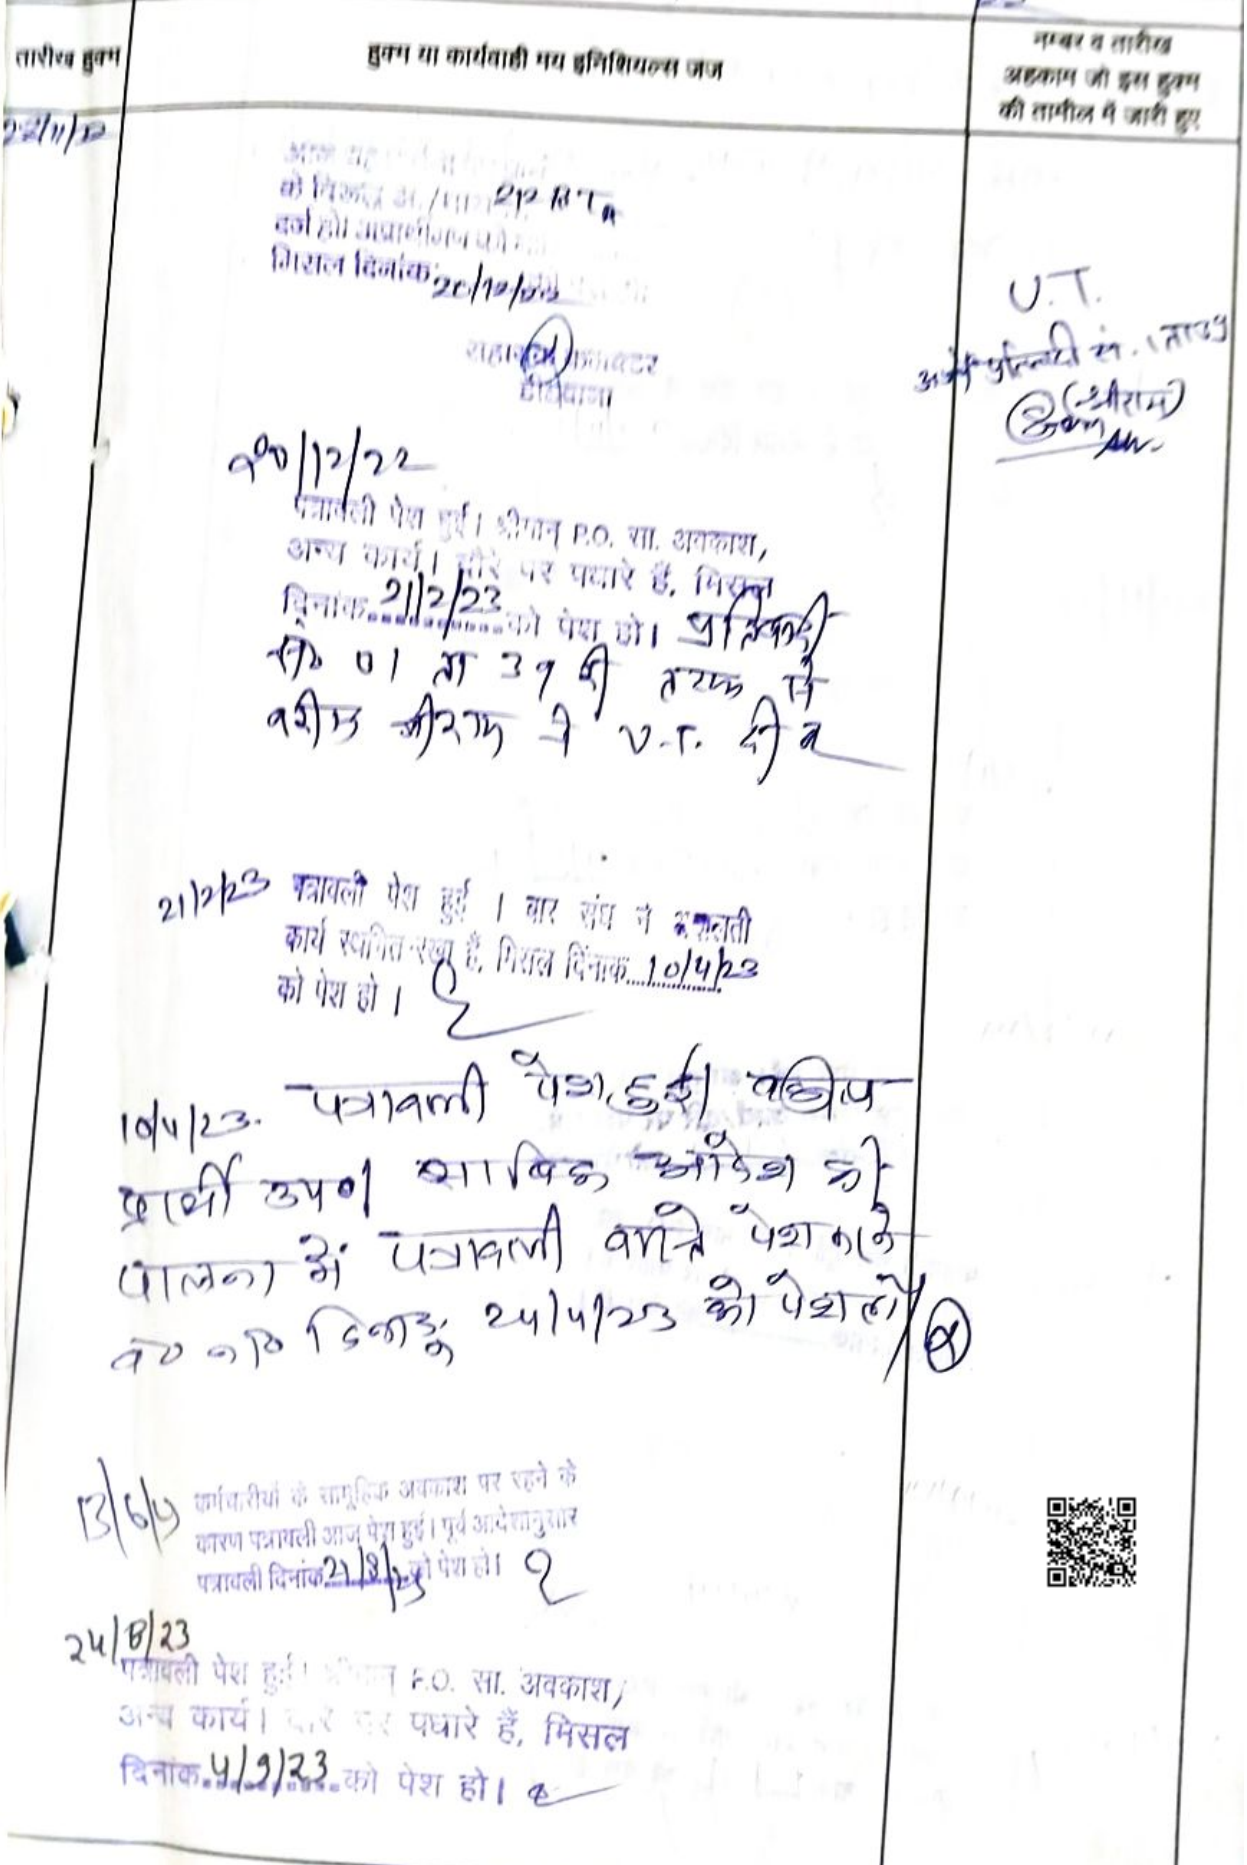 तारीख हुक्म
हुक्म या कार्यवाही मय इनिशियल्स जज
नम्बर व तारीख
अहकाम जो इस हुक्म
की तामील में जारी हुए
22/11/22
के विरूद्ध 212 RTA
दर्ज हो।
मिसल दिनांक 20/12/22
सहायक कलक्टर
डीडवाना
U.T.
(श्रीराम)
20/12/22
पत्रावली पेश हुई। श्रीमान् P.O. सा. अवकाश,
अन्य कार्य। दौरे पर पधारे हैं, मिसल
दिनांक 21/2/23 को पेश हो। प्रतिवादी
01 ता 39 की तरफ से
वकील श्रीराम ने U.T. दी व
21/2/23 पत्रावली पेश हुई । बार संघ ने अदालती
कार्य स्थगित रखा है, मिसल दिनांक 10/4/23
को पेश हो ।
10/4/23. पत्रावली पेश हुई। वकील
प्रार्थी उप० साबिक आदेश की
पालना में पत्रावली वास्ते पेश
दिनांक 24/4/23 को पेश हो।
13/6/ कर्मचारीयों के सामूहिक अवकाश पर रहने के
कारण पत्रावली आज पेश हुई। पूर्व आदेशानुसार
पत्रावली दिनांक को पेश हो।
24/8/23
पत्रावली पेश हुई। श्रीमान् P.O. सा. अवकाश,
अन्य कार्य। दौरे पर पधारे हैं, मिसल
दिनांक 4/9/23 को पेश हो।